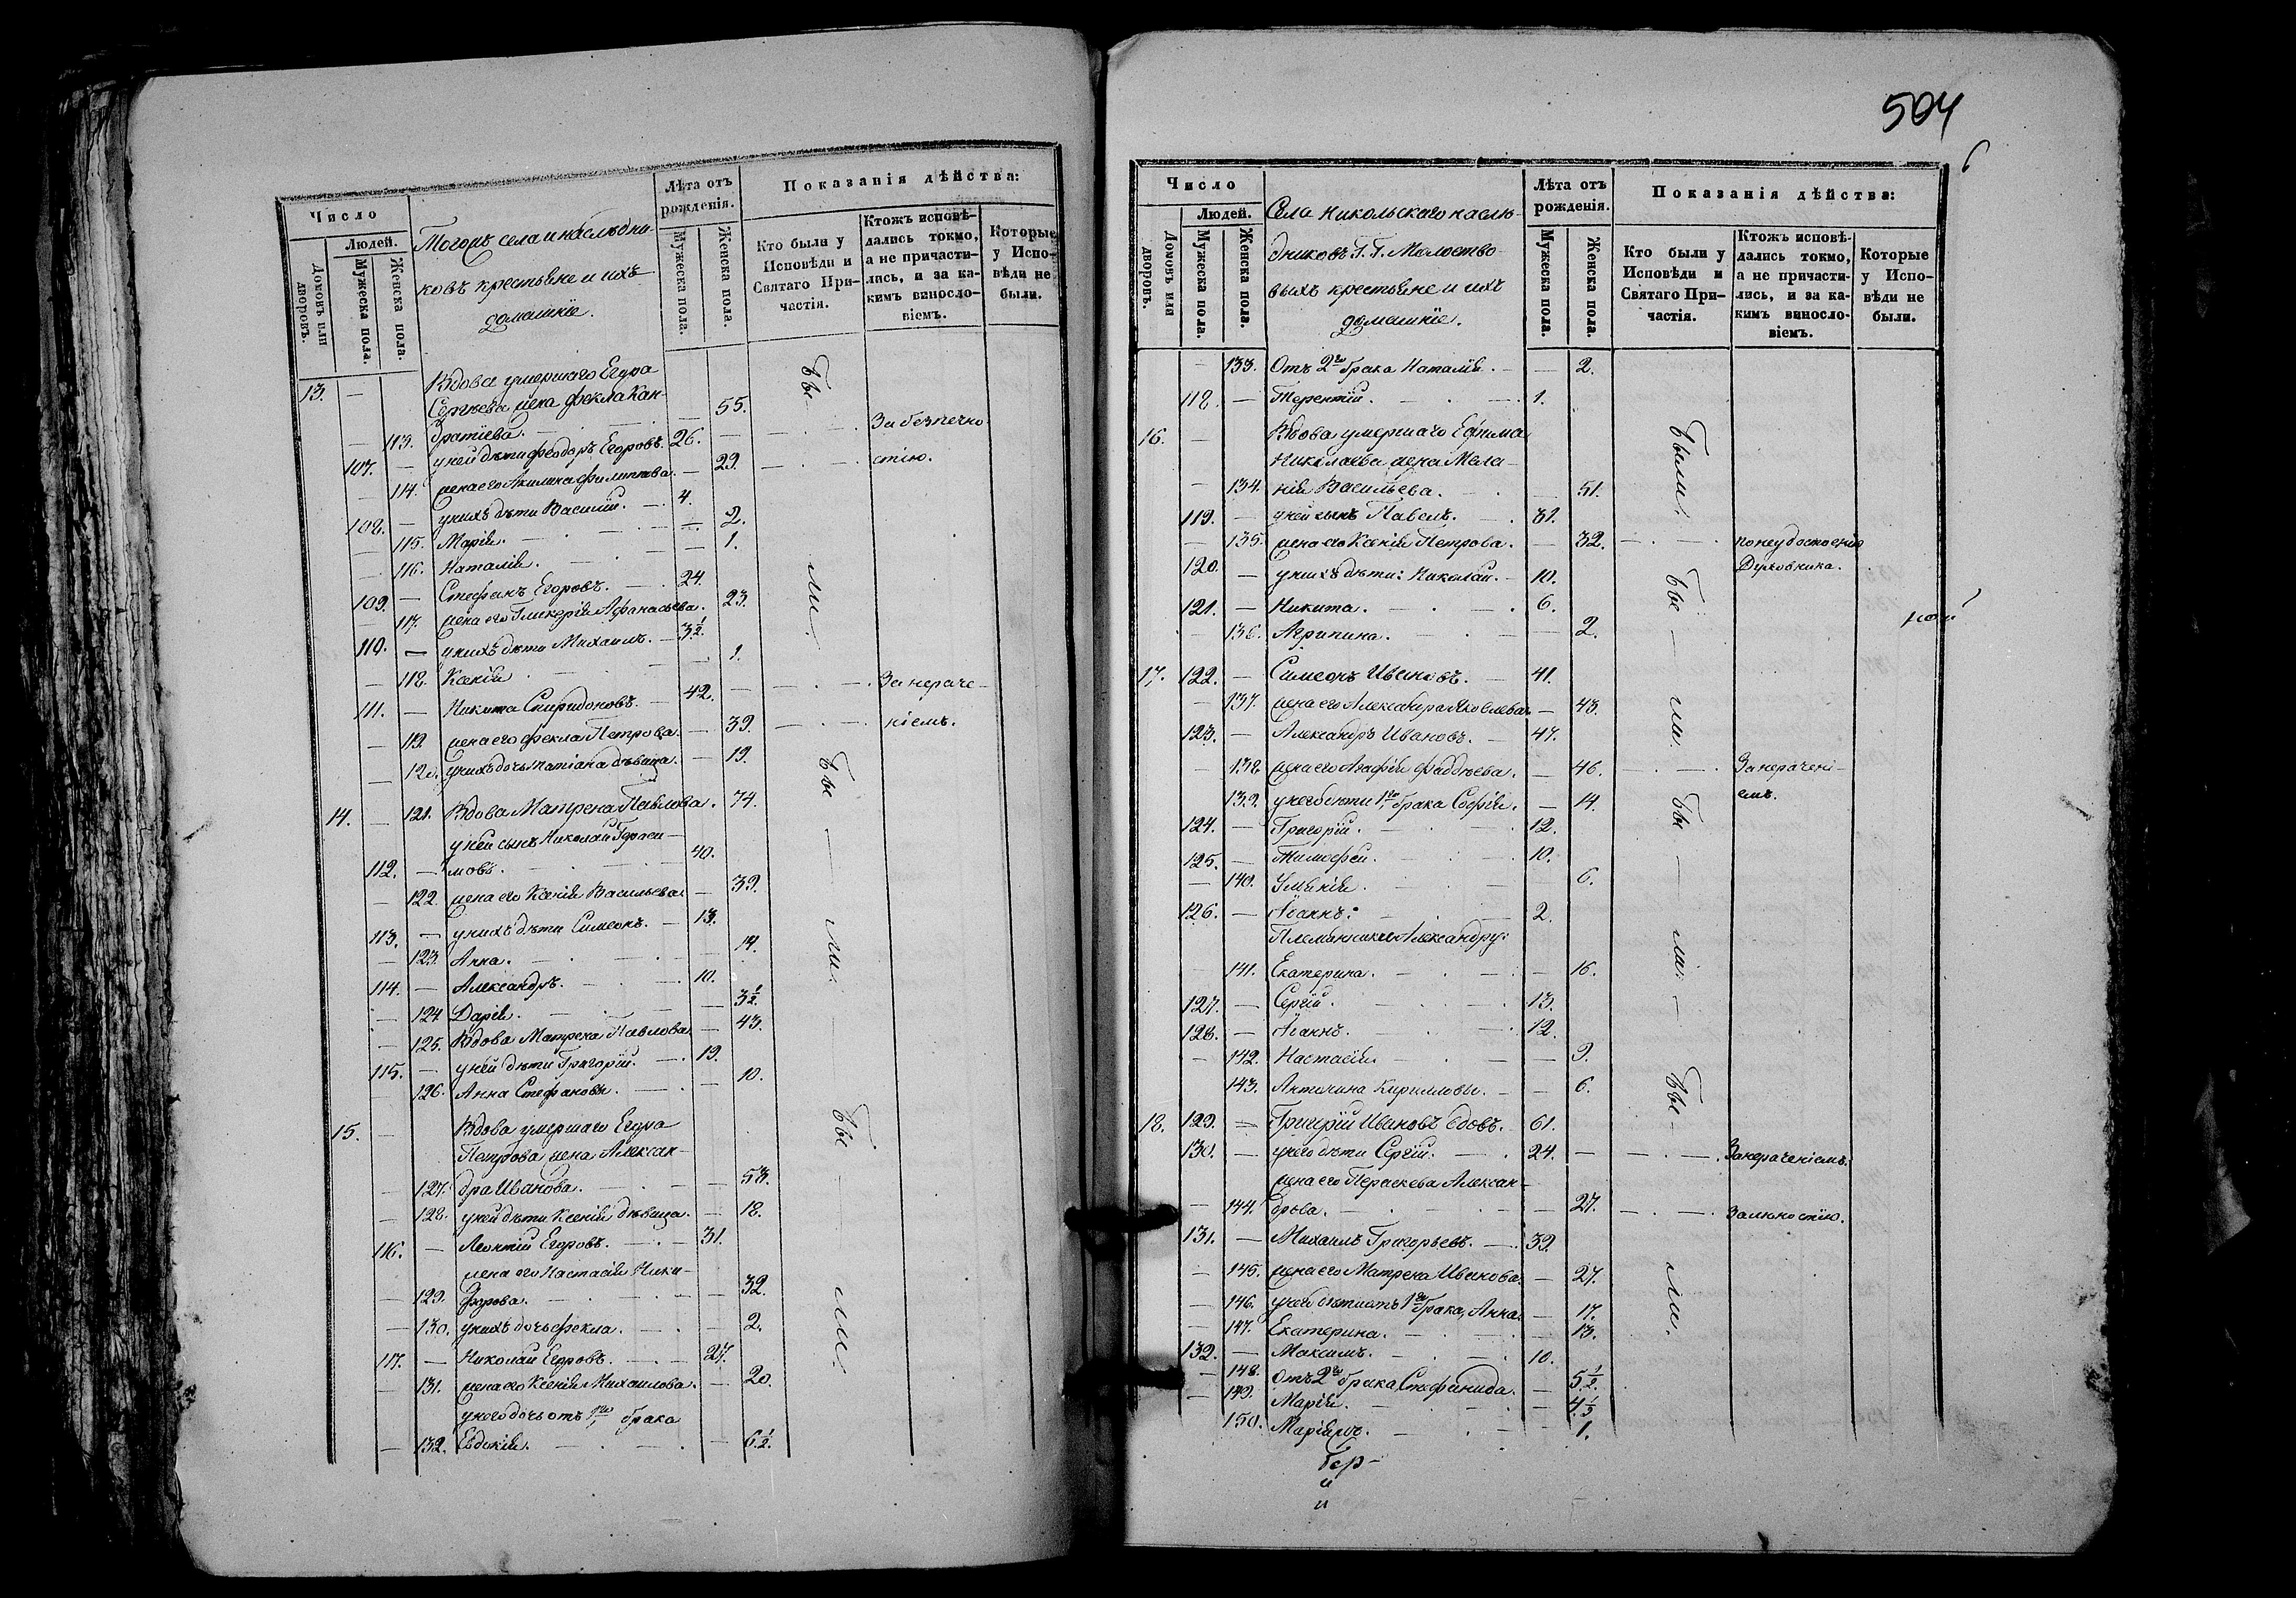 504
Число
Людей.
Домовъ или дворовъ.
Мужеска пола.
Женска пола.
Тогожъ села и наслѣдни-
ковъ крестьяне и ихъ
домашніе.
Лѣта отъ рожденія.
Мужеска пола.
Женска пола.
Показанія дѣйства:
Кто были у Исповѣди и Святаго При-частія.
Ктожъ исповѣ-дались токмо, а не причасти-лись, и за ка-кимъ винословіемъ.
Которые у Испо-вѣди не были.
13. — Вдова умершаго Егора
Сергѣева жена Фекла Кон-
— 113. дратіева. — 55.
107. — у ней дѣти Феодоръ Егоровъ. 26. — За безпечно
— 114. жена его Акилина Филиппова. — 29. стію.
108. — у нихъ дѣти Василій. 4.
— 115. Марія. — 2.
— 116. Наталія. — 1.
109. — Стефанъ Егоровъ. 24.
— 117. жена его Гликерія Афанасьева. 23.
110. — у нихъ дѣти Михаилъ. 3½.
— 118. Ксенія — 1.
111. — Никита Спиридоновъ. 42. — За нераче-
— 119. жена его Фекла Петрова. — 39. ніемъ.
— 120. у нихъ дочь Татіана дѣвица. — 19.
14. — 121. Вдова Матрена Павлова. 74.
у ней сынъ Николай Гераси-
112. — мовъ. 40.
— 122. жена его Ксенія Васильева. — 39.
113. — у нихъ дѣти Симеонъ. 13.
— 123. Анна. — 14.
114. — Александръ. 10.
— 124. Дарія. — 3½.
— 125. Вдова Матрена Павлова. — 43.
115. — у ней дѣти Григорій. 19.
— 126. Анна Стефановы. — 10.
15. — Вдова умершаго Егора
Петрова жена Алексан-
— 127. дра Иванова. — 58.
— 128. у ней дѣти Ксенія дѣвица. — 18.
116. — Леонтій Егоровъ. 31.
жена его Настасія Ники-
— 129. форова. — 32.
— 130. у нихъ дочь Фекла. — 2.
117. — Николай Егоровъ. 27.
— 131. жена его Ксенія Михаилова. — 20.
у него дочь отъ 1го брака
— 132. Евдокія. — 6½.
Бы — ли.
Бы — ли.
Бы — ли.
Число
Людей.
Домовъ или дворовъ.
Мужеска пола.
Женска пола.
Села Никольскаго наслѣ-
дниковъ Г. Г. Молоство-
выхъ крестьяне и ихъ
домашніе.
Лѣта отъ рожденія.
Мужеска пола.
Женска пола.
Показанія дѣйства:
Кто были у Исповѣди и Святаго При-частія.
Ктожъ исповѣ-дались токмо, а не причасти-лись, и за ка-кимъ винословіемъ.
Которые у Испо-вѣди не были.
— 133. Отъ 2го брака Наталія. — 2.
118. — Терентій. 1.
16. — Вдова умершаго Ефима
Николаева жена Мела-
— 134. нія Васильева. — 51.
119. — у ней сынъ Павелъ. 31.
— 135. жена его Ксенія Петрова. — 32. по неудостоенію
Духовника.
120. — у нихъ дѣти: Николай. 10.
121. — Никита. 6.
— 136. Агрипина. — 2.
17. 122. — Симеонъ Ивановъ. 41.
— 137. жена его Александра Яковлева. — 43.
123. — Александръ Ивановъ. 47.
— 138. жена его Агафія Фаддѣева. — 46. За нерачені-
емъ.
139. у него дѣти 1го брака Софія. — 14.
124. — Григорій. 12.
125. — Тимофей. 10.
— 140. Улянія. — 6.
126. — Іоаннъ. 2.
Племянники Александру:
141. Екатерина. — 16.
127. — Сергій. 13.
128. — Іоаннъ. 12.
— 142. Настасія. — 9.
143. Антонина Кирилловы. — 6.
18. 129. — Григорій Ивановъ вдовъ. 61.
130. — у него дѣти Сергій. 24. — За нераченіемъ.
жена его Параскева Алексан-
— 144. дрова. — 27. За лѣностію.
131. — Михаилъ Григорьевъ. 39.
— 145. жена его Матрена Иванова. — 27.
— 146. у него дѣти отъ 1го брака, Анна. — 17.
— 147. Екатерина. — 13.
132. — Максимъ. 10.
— 148. Отъ 2го брака, Стефанида. — 5½.
— 149. Марія. — 4½
150. Маріамъ. — 1.
Были.
Бы — ли.
Бы — ли —
Бы — ли.